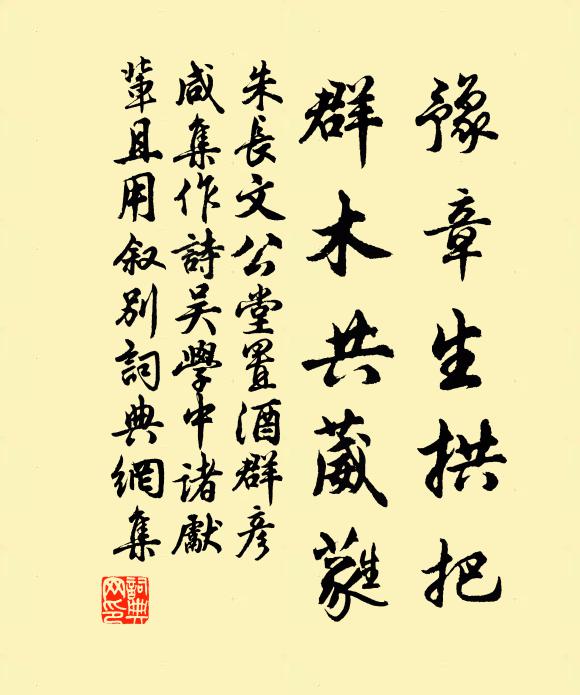 豫章生拱把
群木共葳蕤
朱長文公堂置酒群彥
咸集作詩吴學中諸獻
輩且用叙別詞典網集
詞典網印